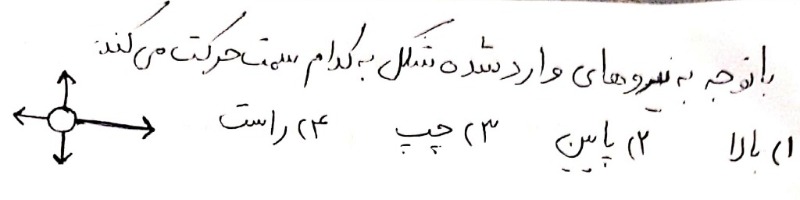 باتوجه به نیروهای وارد شده شکل به کدام سمت حرکت می کند:
۱) بالا ۲) پایین ۳) چپ ۴) راست